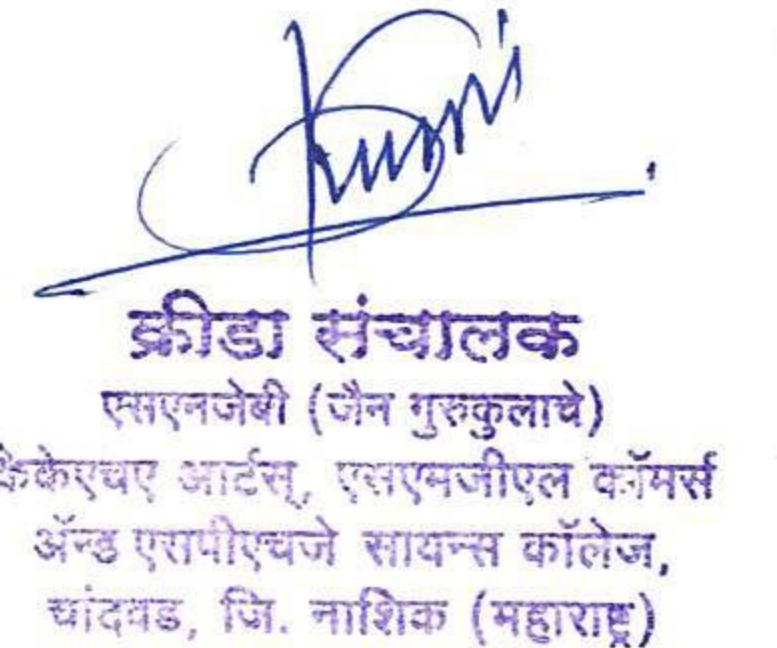 क्रीडा संचालक
एसएनजेबी (जैन गुरुकुलाचे)
केकेएचए आर्टस्, एसएमजीएल कॉमर्स
ॲन्ड एसपीएचजे सायन्स कॉलेज,
चांदवड, जि. नाशिक (महाराष्ट्र)